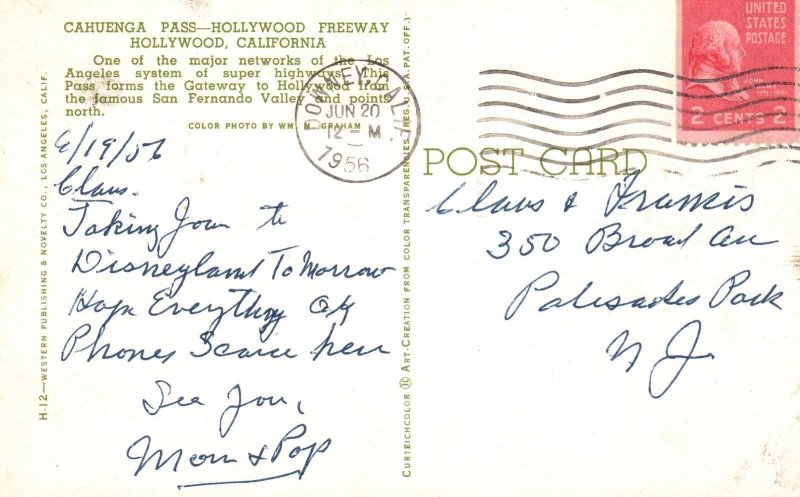 CAHUENGA PASS—HOLLYWOOD FREEWAY
HOLLYWOOD, CALIFORNIA
One of the major networks of the Los
Angeles system of super highways. This
Pass forms the Gateway to Hollywood from
the famous San Fernando Valley and points
north.
COLOR PHOTO BY WM. M. GRAHAM
6/19/56
Claus.
Taking Joan to
Disneyland ToMorrow
Hope Everything OK
Phones Scarce here
See You,
Mom & Pop
H-12—WESTERN PUBLISHING & NOVELTY CO., LOS ANGELES, CALIF.
CURTEICHCOLOR ART-CREATION FROM COLOR TRANSPARENCIES (REG. U.S.A. PAT. OFF.)
DOWNEY, CALIF.
JUN 20
12 — M
1956
UNITED
STATES
POSTAGE
JOHN
2 CENTS 2
POST CARD
Claus & Francis
350 Broad Av
Palisades Park
N J.